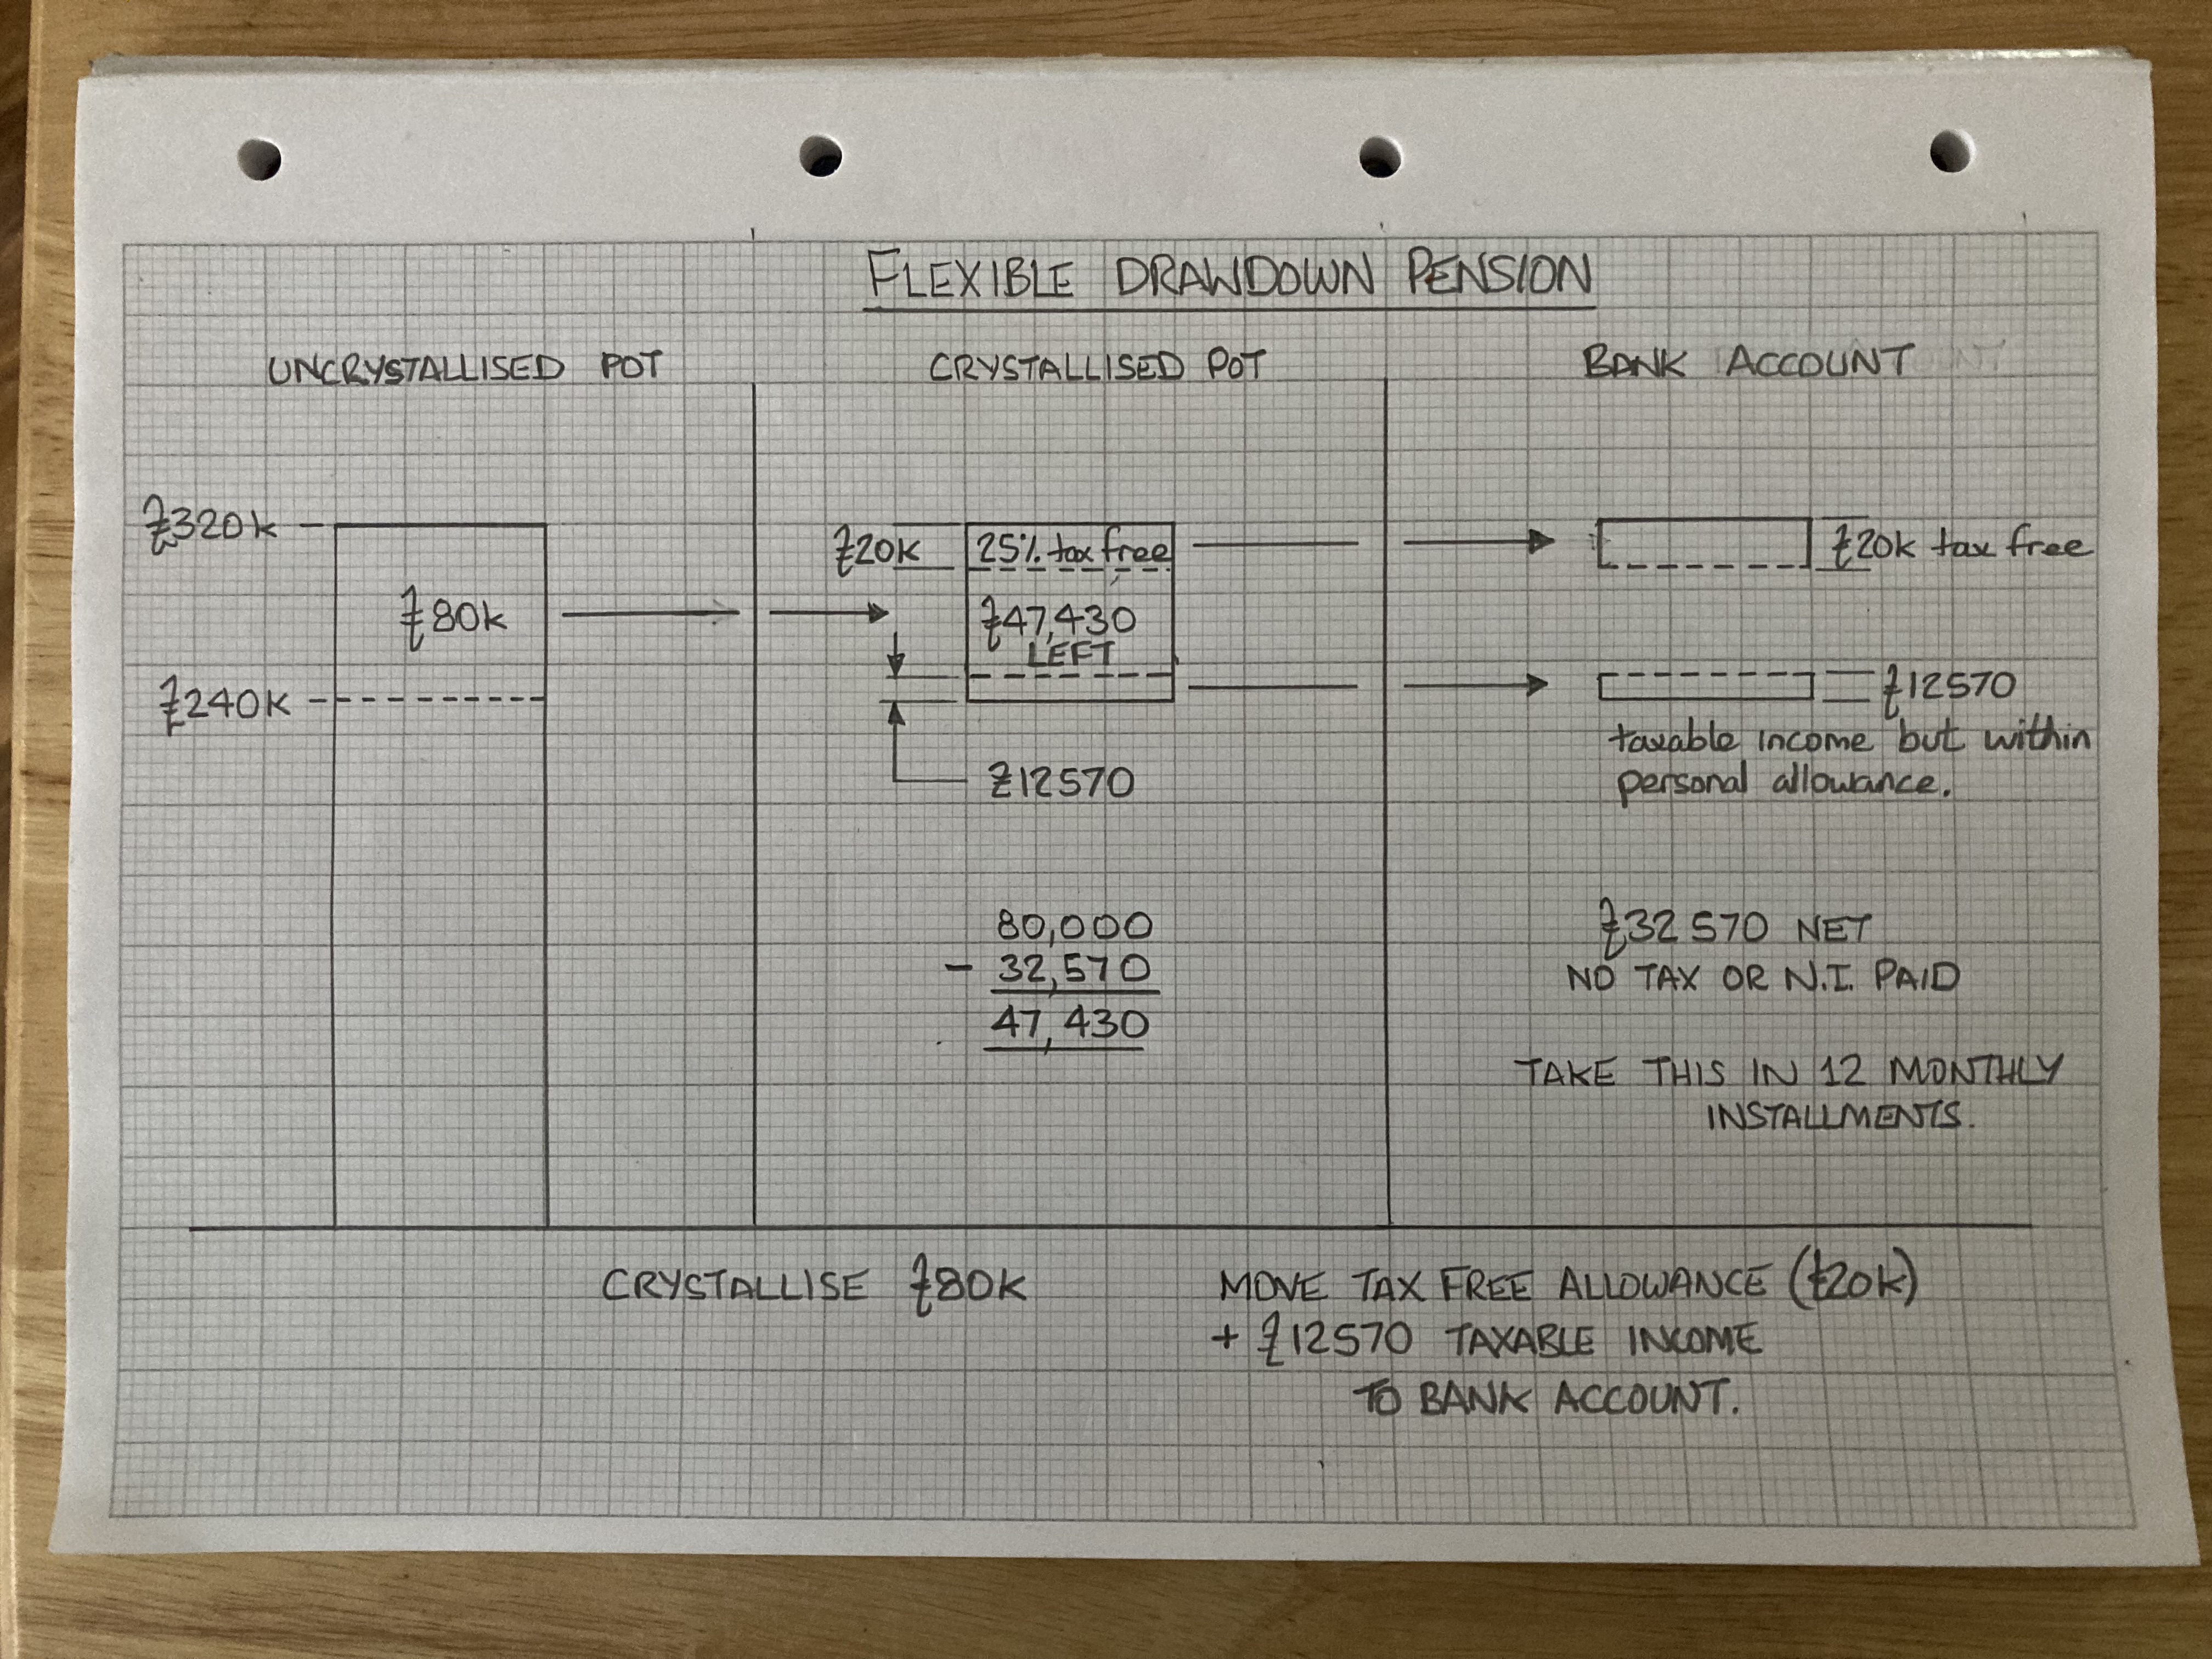 FLEXIBLE DRAWDOWN PENSION
UNCRYSTALLISED POT
CRYSTALLISED POT
BANK ACCOUNT
£320k
£80k
£240k
£20k
25% tax free
£47,430
LEFT
£12570
£20k tax free
£12570
taxable income but within
personal allowance.
80,000
- 32,570
47,430
£32570 NET
NO TAX OR N.I. PAID
TAKE THIS IN 12 MONTHLY
INSTALLMENTS.
CRYSTALLISE £80k
MOVE TAX FREE ALLOWANCE (£20k)
+ £12570 TAXABLE INCOME
TO BANK ACCOUNT.